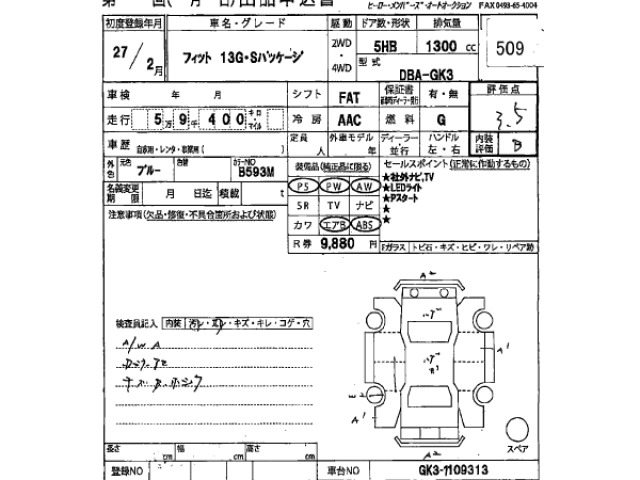 ヒーロー・メンバーズ・オートオークション FAX 0493-65-4004
初度登録年月 車名・グレード 駆動 ドア数・形状 排気量
27/2月 フィット 13G・Sパッケージ 2WD・4WD 5HB 1300 cc 509
型式 DBA-GK3
車検 年 月 シフト FAT 保証書 有・無 評価点
3.5
走行 5万9千400 キロ マイル 冷房 AAC 燃料 G 内装評価 B
車歴 自家用・レンタ・事業用( ) 定員 人 外車モデル 年 ディーラー・並行 ハンドル 左・右
外色 元色 ブルー 色替 カラーNO B593M
装備品(純正品に限る) セールスポイント(正常に作動するもの)
PS PW AW
★社外ナビ,TV
★LEDライト
★Pスタート
★
★
名義変更期限 月 日迄 積載 t
SR TV ナビ
カワ エアB ABS
注意事項(欠品・修復・不具合箇所および状態)
R券 9,880 円
Fガラス トビ石・キズ・ヒビ・ワレ・リペア跡
検査員記入 内装 汚レ・スレ・キズ・キレ・コゲ・穴
A/W A
A2
A1
A1
A2
スペア
長さ cm 幅 cm 高さ cm
登録NO 車台NO GK3-1109313